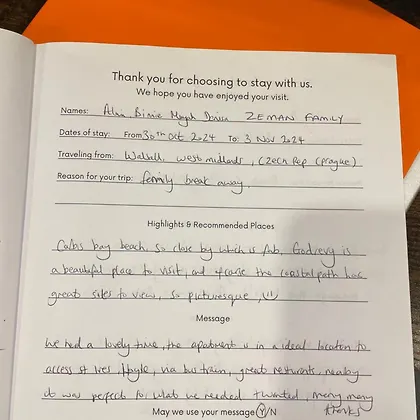 Thank you for choosing to stay with us.
We hope you have enjoyed your visit.
Names: ZEMAN FAMILY
Dates of stay: From 30th Oct 2024 To: 3 Nov 2024
Traveling from: Walsall, west midlands, (Czech Rep (prague)
Reason for your trip: family break away.
Highlights & Recommended Places
bay beach, so close by which is fab, Godrevy is
a beautiful place to visit, and of course the coastal path has
great sites to view, so picturesque,
Message
We had a lovely time, the apartment is in a ideal location to
access st Ives, Hayle, via bus train, great resturants, nearby
it was perfect for what we needed + wanted, many many
thanks
May we use your message Y/N